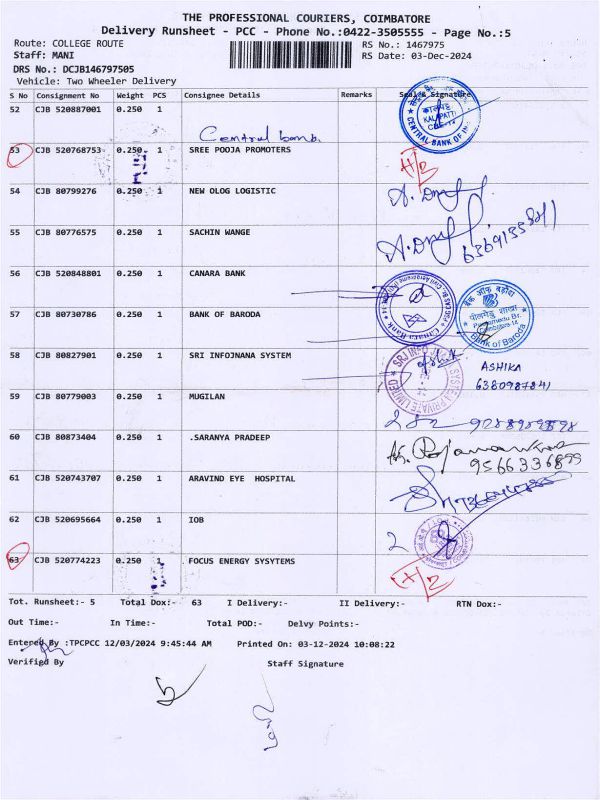 THE PROFESSIONAL COURIERS, COIMBATORE
Delivery Runsheet - PCC - Phone No.:0422-3505555 - Page No.:5
Route: COLLEGE ROUTE RS No.: 1467975
Staff: MANI RS Date: 03-Dec-2024
DRS No.: DCJB146797505
Vehicle: Two Wheeler Delivery
S No Consignment No Weight PCS Consignee Details Remarks Seal & Signature
52 CJB 520887001 0.250 1
Central bank
53 CJB 520768753 0.250 1 SREE POOJA PROMOTERS
54 CJB 80799276 0.250 1 NEW OLOG LOGISTIC
55 CJB 80776575 0.250 1 SACHIN WANGE
56 CJB 520848801 0.250 1 CANARA BANK
57 CJB 80730786 0.250 1 BANK OF BARODA
बैंक ऑफ़ बड़ौदा
Bank of Baroda
58 CJB 80827901 0.250 1 SRI INFOJNANA SYSTEM
ASHIKA
6380987841
59 CJB 80779003 0.250 1 MUGILAN
60 CJB 80873404 0.250 1 .SARANYA PRADEEP
9566336899
61 CJB 520743707 0.250 1 ARAVIND EYE HOSPITAL
62 CJB 520695664 0.250 1 IOB
63 CJB 520774223 0.250 1 FOCUS ENERGY SYSYTEMS
Tot. Runsheet:- 5 Total Dox:- 63 I Delivery:- II Delivery:- RTN Dox:-
Out Time:- In Time:- Total POD:- Delvy Points:-
Entered By :TPCPCC 12/03/2024 9:45:44 AM Printed On: 03-12-2024 10:08:22
Verifigd By Staff Signature